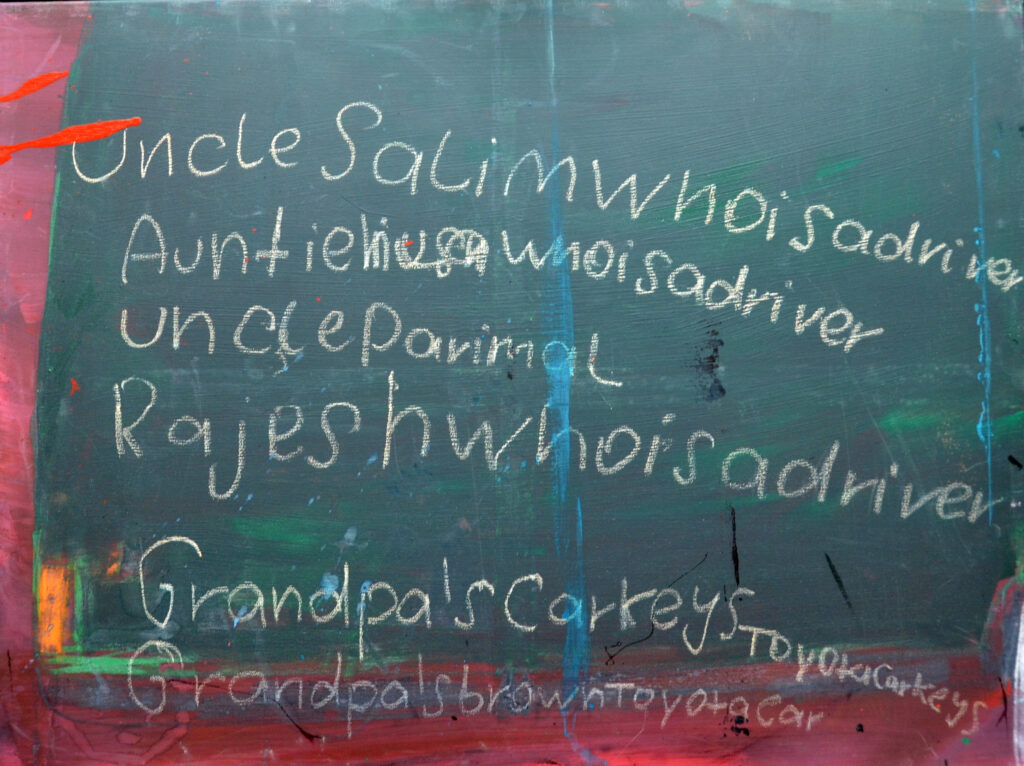 Uncle Salim who is a driver
Auntie who is a driver
uncle Parimal
Rajesh who is a driver
Grandpa's Car keys Toyota Car keys
Grandpa's brown Toyota Car